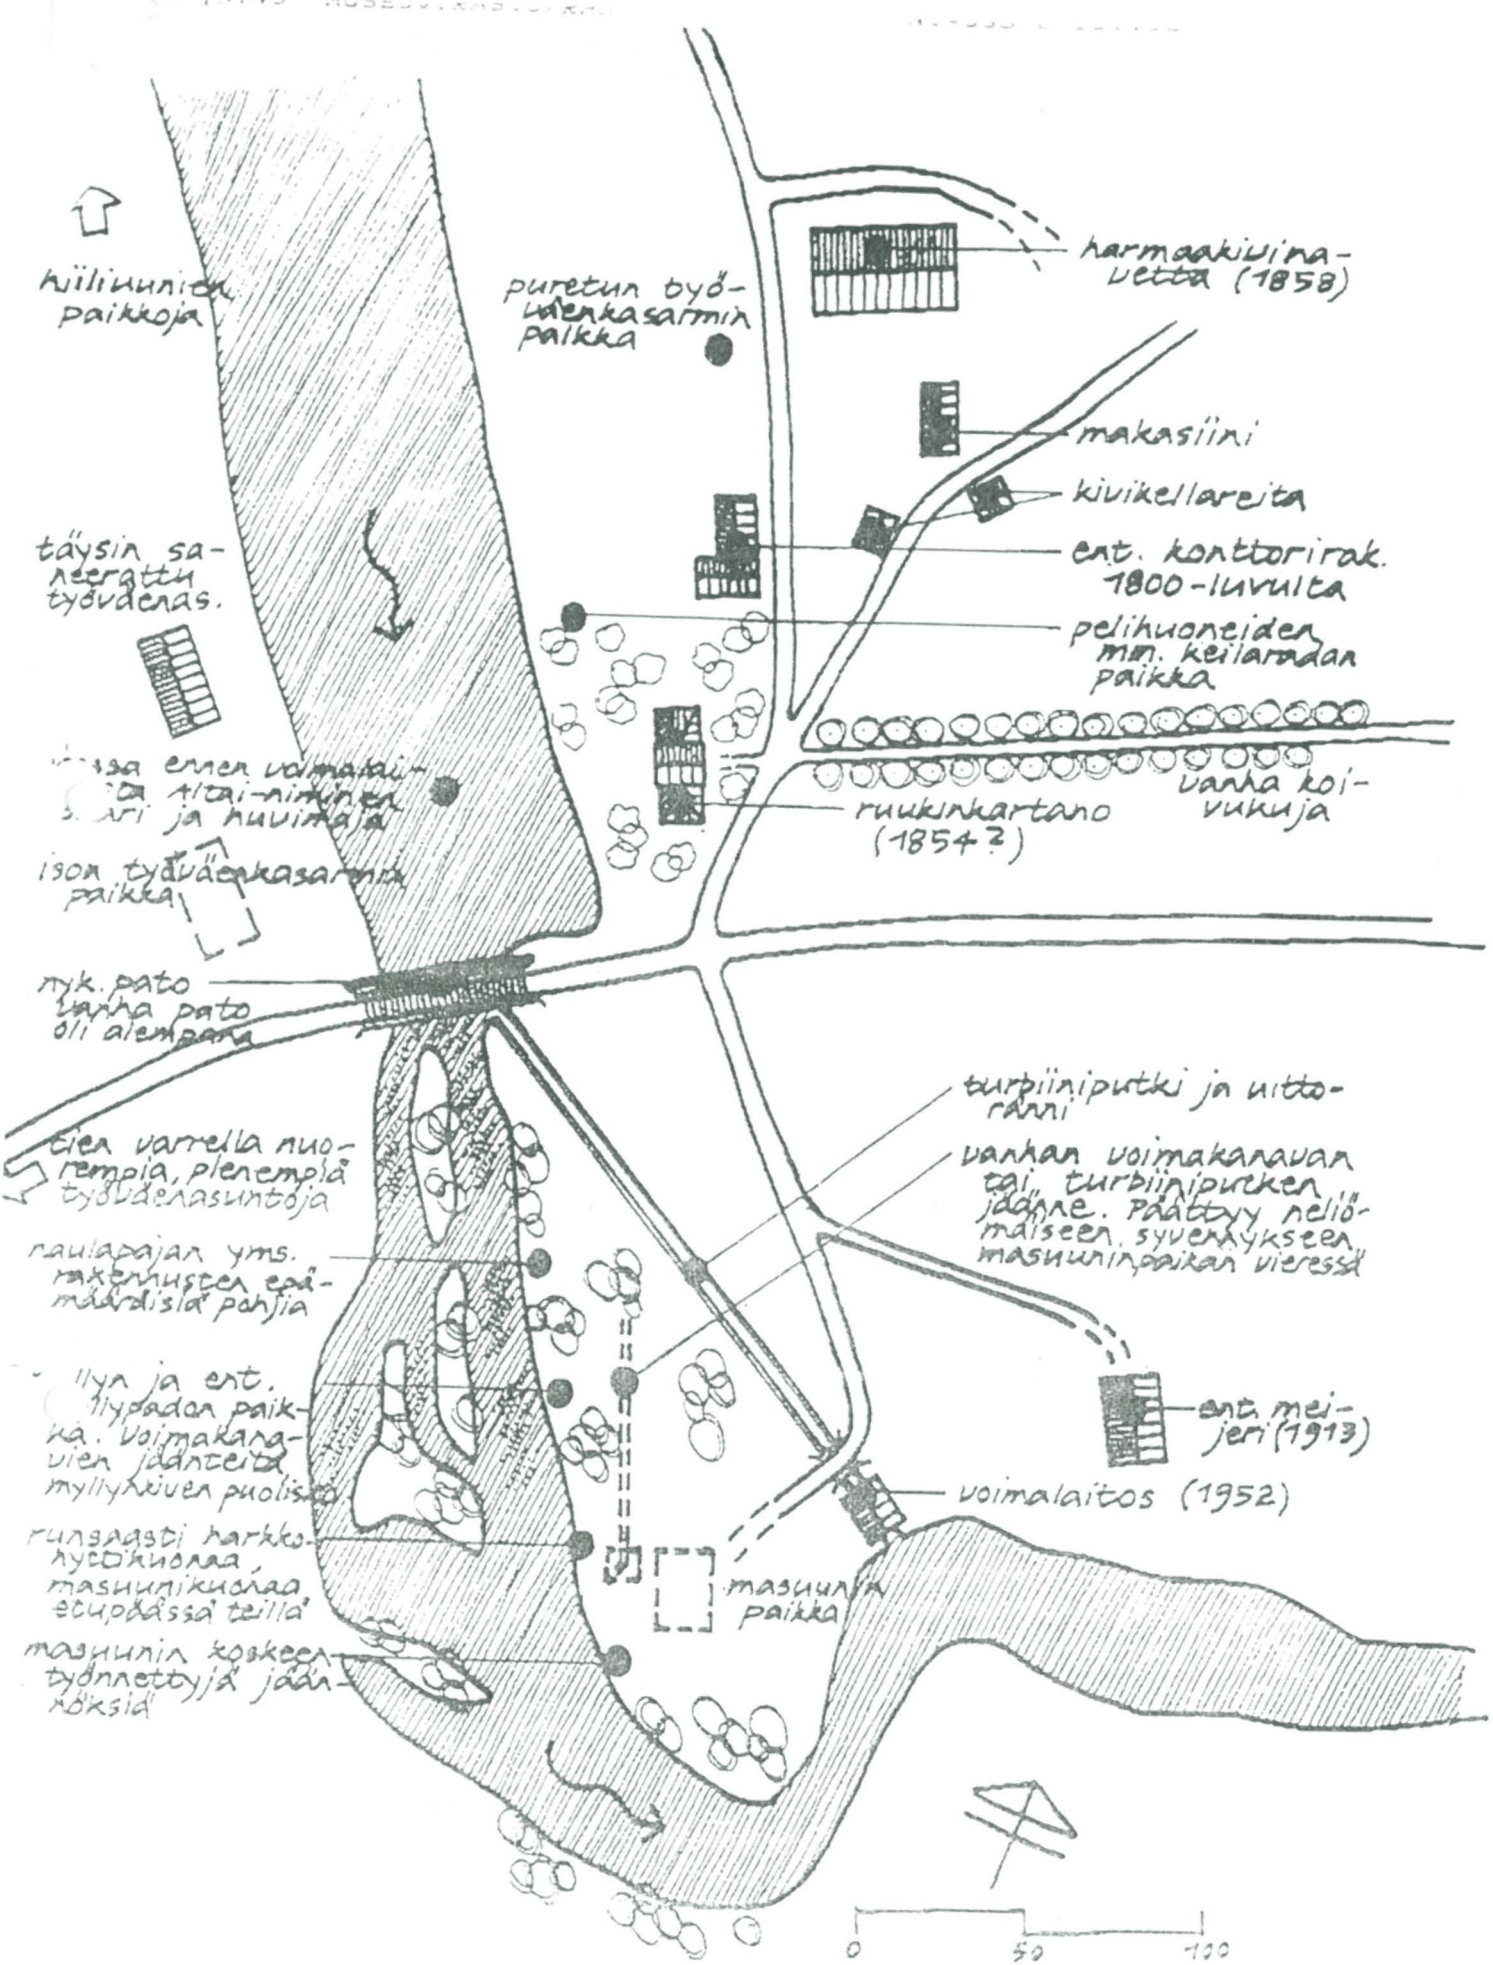 hiiliuunien
paikkoja
puretun työ-
väenkasarmin
paikka
harmaakivina-
vetta (1858)
makasiini
kivikellareita
ent. konttorirak.
1800-luvulta
pelihuoneiden
mm. keilaradan
paikka
täysin sa-
neerattu
työväenas.
ennen voimalai-
Altai-niminen
ja huvimaja
ison työväenkasarmin
paikka
vanha koi-
vukuja
ruukinkartano
(1854?)
nyk. pato
vanha pato
oli alempana
tien varrella nuo-
rempia, pienempiä
työväenasuntoja
turbiiniputki ja uitto-
ränni
vanhan voimakanavan
tai turbiiniputken
jäänne. Päättyy neliö-
mäiseen syvennykseen
masuuninpaikan vieressä
naulapajan yms.
rakennusten epä-
määräisiä pohjia
ja ent.
paik-
ka. voimakana-
vien jäänteitä
myllynkiven puolisko
ent. mei-
jeri (1913)
voimalaitos (1952)
runsaasti harkko-
hyttikuonaa,
masuunikuonaa
etupäässä teillä
masuunin
paikka
masuunin koskeen
työnnettyjä jään-
nöksiä
0 50 100